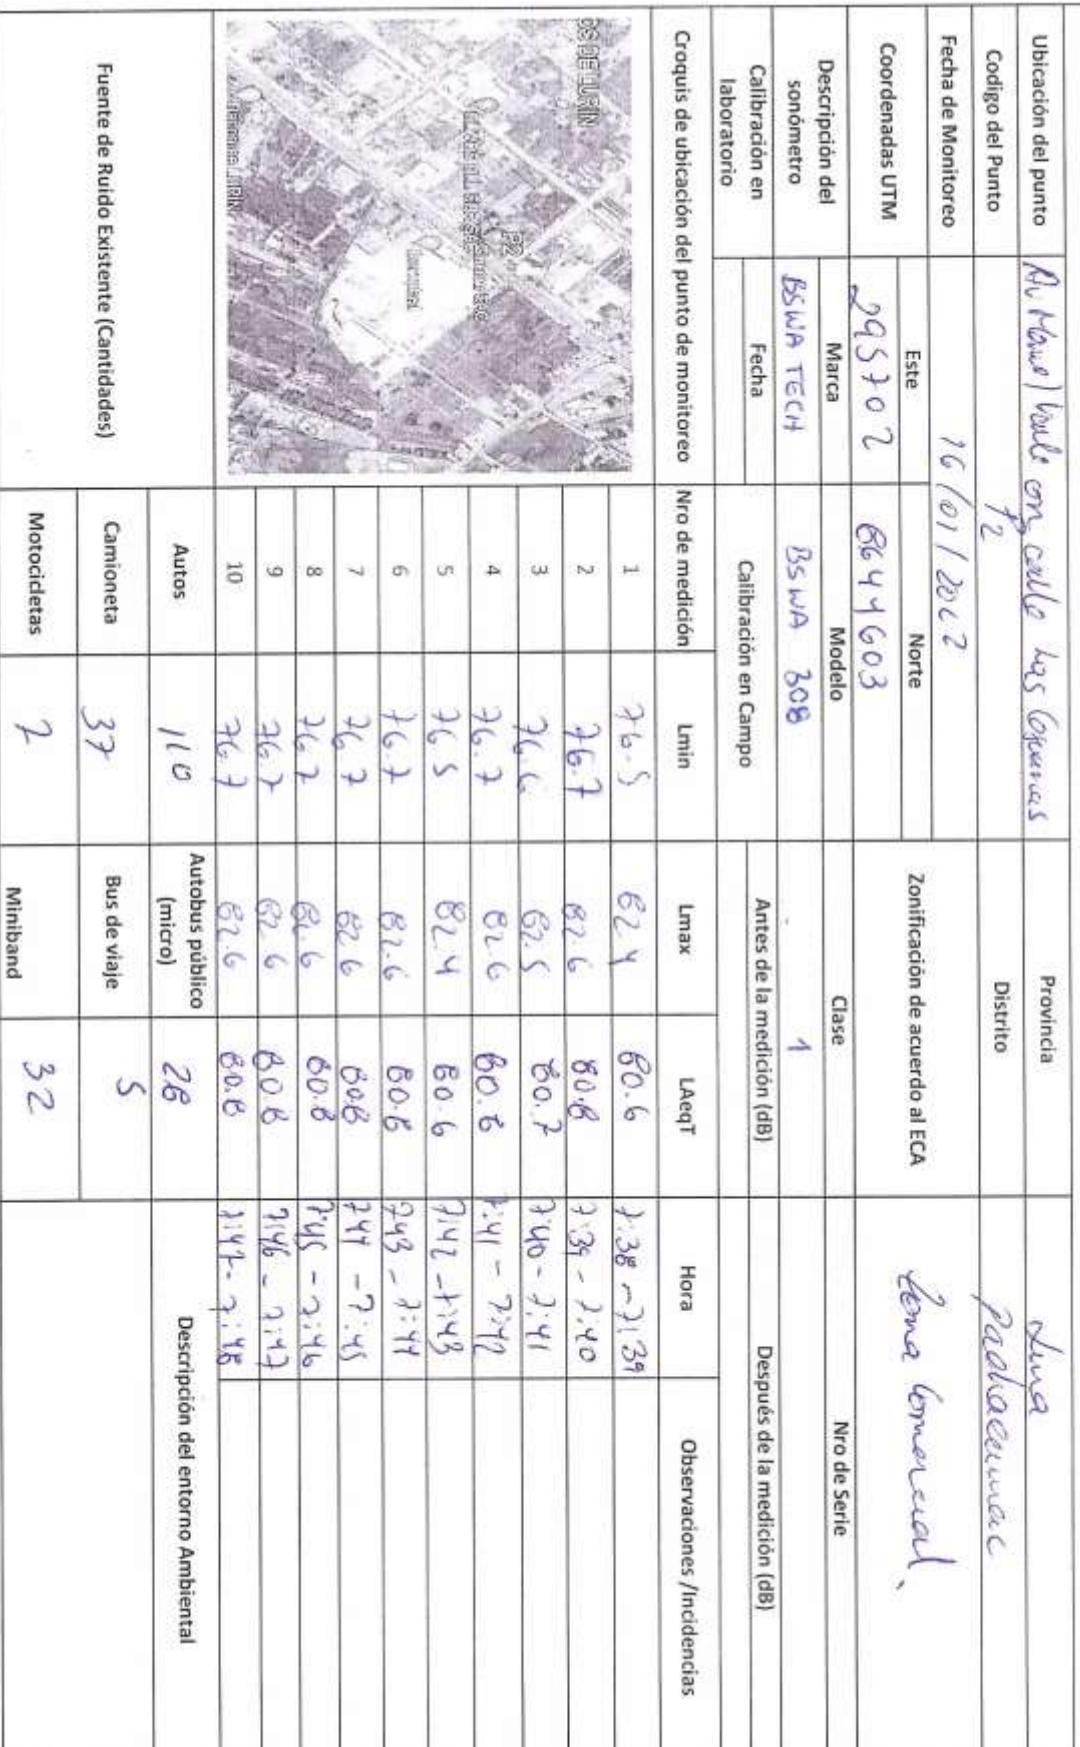 Ubicación del punto Av Manuel Valle con calle Las Provincia Lima
Codigo del Punto P2 Distrito Pachacamac
Fecha de Monitoreo 16/01/2022 Zonificación de acuerdo al ECA Zona Comercial.
Coordenadas UTM Este Norte
295702 8644603
Descripción del sonómetro Marca Modelo Clase Nro de Serie
BSWA TECH BSWA 308 1
Calibración en laboratorio Fecha Calibración en Campo Antes de la medición (dB) Después de la medición (dB)
Croquis de ubicación del punto de monitoreo Nro de medición Lmin Lmax LAeqT Hora Observaciones /Incidencias
OS DE LURIN
P2
1 76.5 82.4 80.6 7:38 - 7:39
2 76.7 82.6 80.8 7:39 - 7:40
3 76.6 82.5 80.7 7:40 - 7:41
4 76.7 82.6 80.8 7:41 - 7:42
5 76.5 82.4 80.6 7:42 - 7:43
6 76.7 82.6 80.8 7:43 - 7:44
7 76.7 82.6 80.8 7:44 - 7:45
8 76.7 82.6 80.8 7:45 - 7:46
9 76.7 82.6 80.8 7:46 - 7:47
10 76.7 82.6 80.8 7:47 - 7:48
Fuente de Ruido Existente (Cantidades) Autos 110 Autobus público (micro) 28 Descripción del entorno Ambiental
Camioneta 37 Bus de viaje 5
Motocicletas 7 Miniband 32